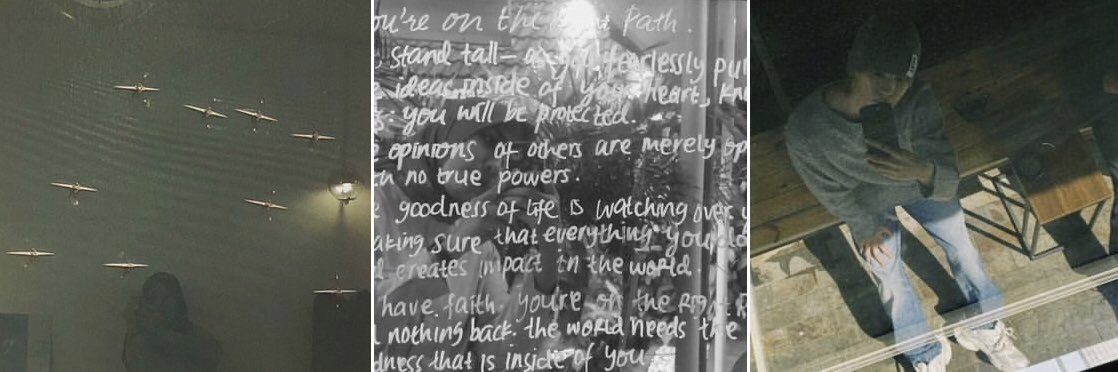 ou're on the Path.
stand tall— fearlessly pur
ideas inside of your heart, kn
you will be protected.
opinions of others are merely op
no true powers.
goodness of life is watching over y
aking sure that everything you do
creates impact in the world.
have faith. you're on the Right P
nothing back. the world needs the
dness that is inside of you